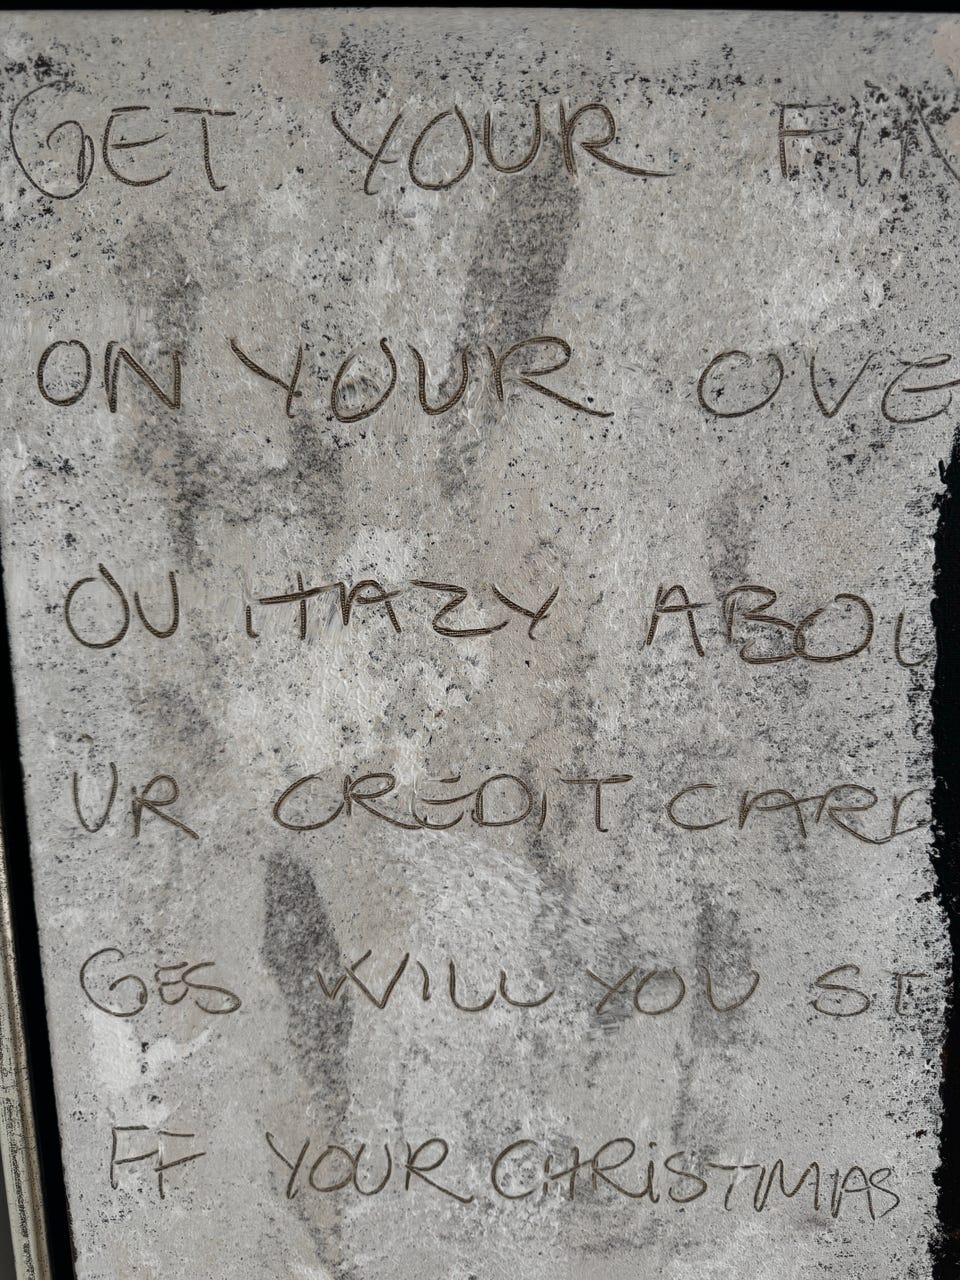 GET YOUR FIN
ON YOUR OVE
OU HAZY ABOU
UR CREDIT CARD
GES WILL YOU ST
FF YOUR CHRISTMAS